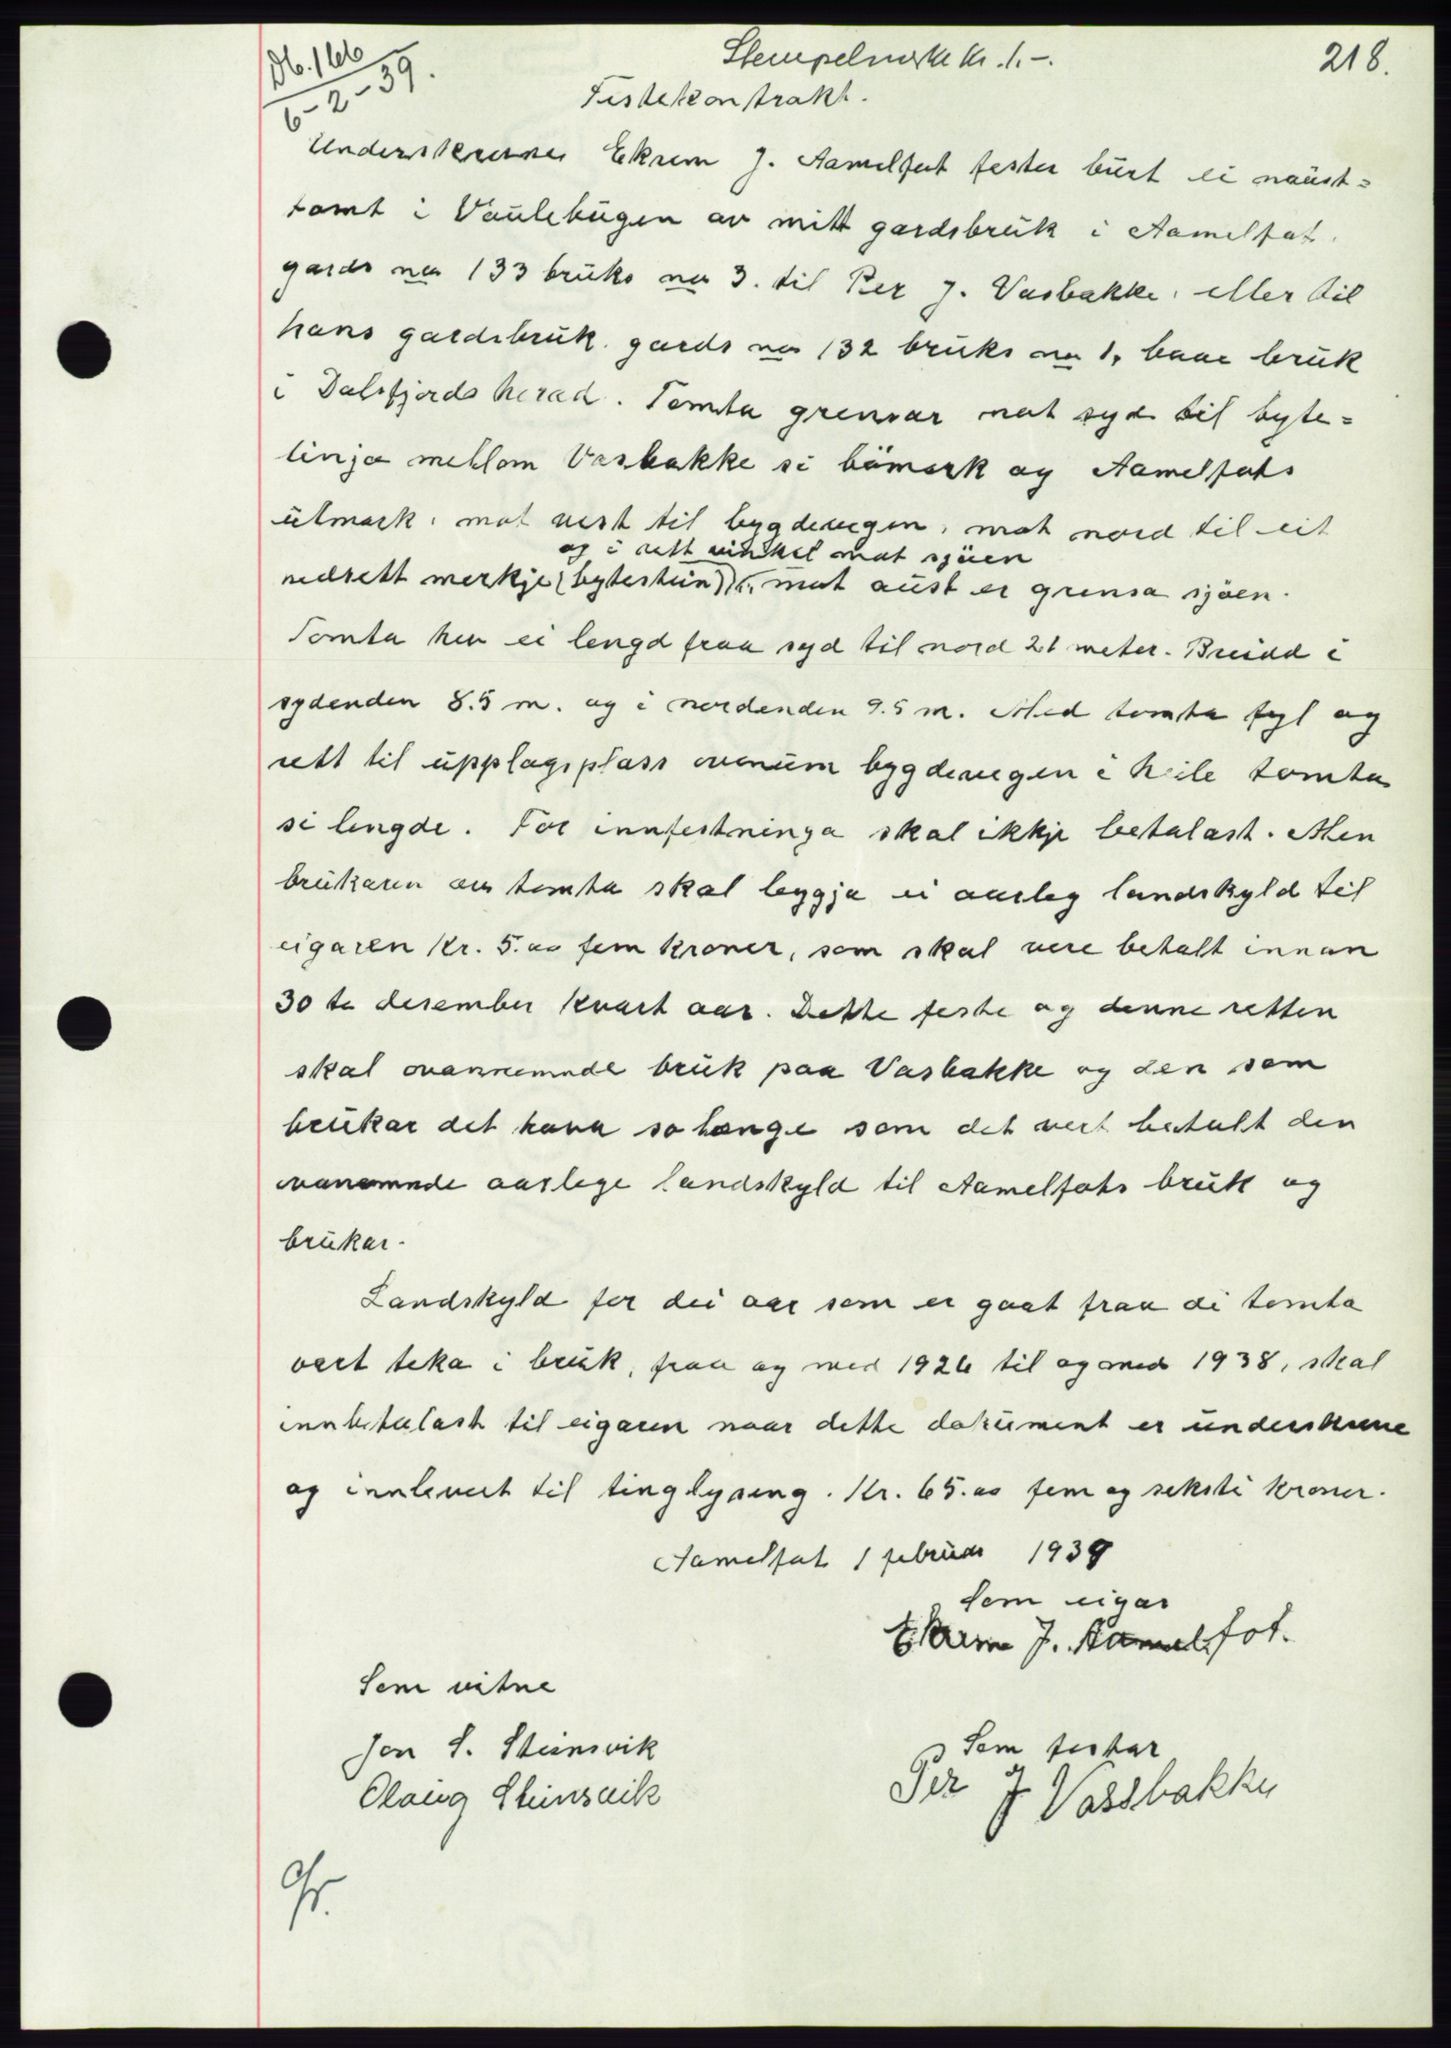 Db. 166
6-2-39.
Stempelmerke kr. 1.-.
218.
Festekontrakt.
Underskrevne Ekrem J. Aamelfot fester burt ei naust=
tomt i Vaulebugen av mitt gardsbruk i Aamelfot,
gards no 133 bruks no 3. til Per J. Vasbakke, eller til
hans gardsbruk. gards no 132 bruks no 1, baae bruk
i Dalsfjords herad. Tomta grensar mot syd til byte=
linja mellom Vasbakke si bömark og Aamelfots
utmark, mot vest til bygdevegen, mot nord til eit
og i rett vinkel mot sjöen
nedsett merkje (bytestein), mot aust er grensa sjöen.
Tomta hev ei lengd fraa syd til nord 21 meter. Breidd i
sydenden 8.5 m. og i nordenden 9.5 m. Med tomta fyl og
rett til upplagsplass ovanum bygdevegen i heile tomta
si lengde. For innfestninga skal ikkje betalast. Men
brukaren av tomta skal leggja ei aarleg landskyld til
eigaren Kr. 5.00 fem kroner, som skal vere betalt innan
30 te desember kvart aar. Dette feste og denne retten
skal ovannemnde bruk paa Vasbakke og den som
brukar det hava so lenge som det vert betalt den
ovanemnde aarlege landskyld til Aamelfots bruk og
brukar.
Landskyld for dei aar som er gaat fraa di tomta
vart teka i bruk, fraa og med 1926 til og med 1938, skal
innbetalast til eigaren naar dette dokument er underskreve
og innlevert til tinglysing. Kr. 65.00 fem og seksti kroner.
Aamelfot 1 februar 1939
Som eigar
Ekrem J. Aamelfot.
Som vitne
Jon S. Steinsvik
Olaug Steinsvik
Som festar
Per J Vassbakke